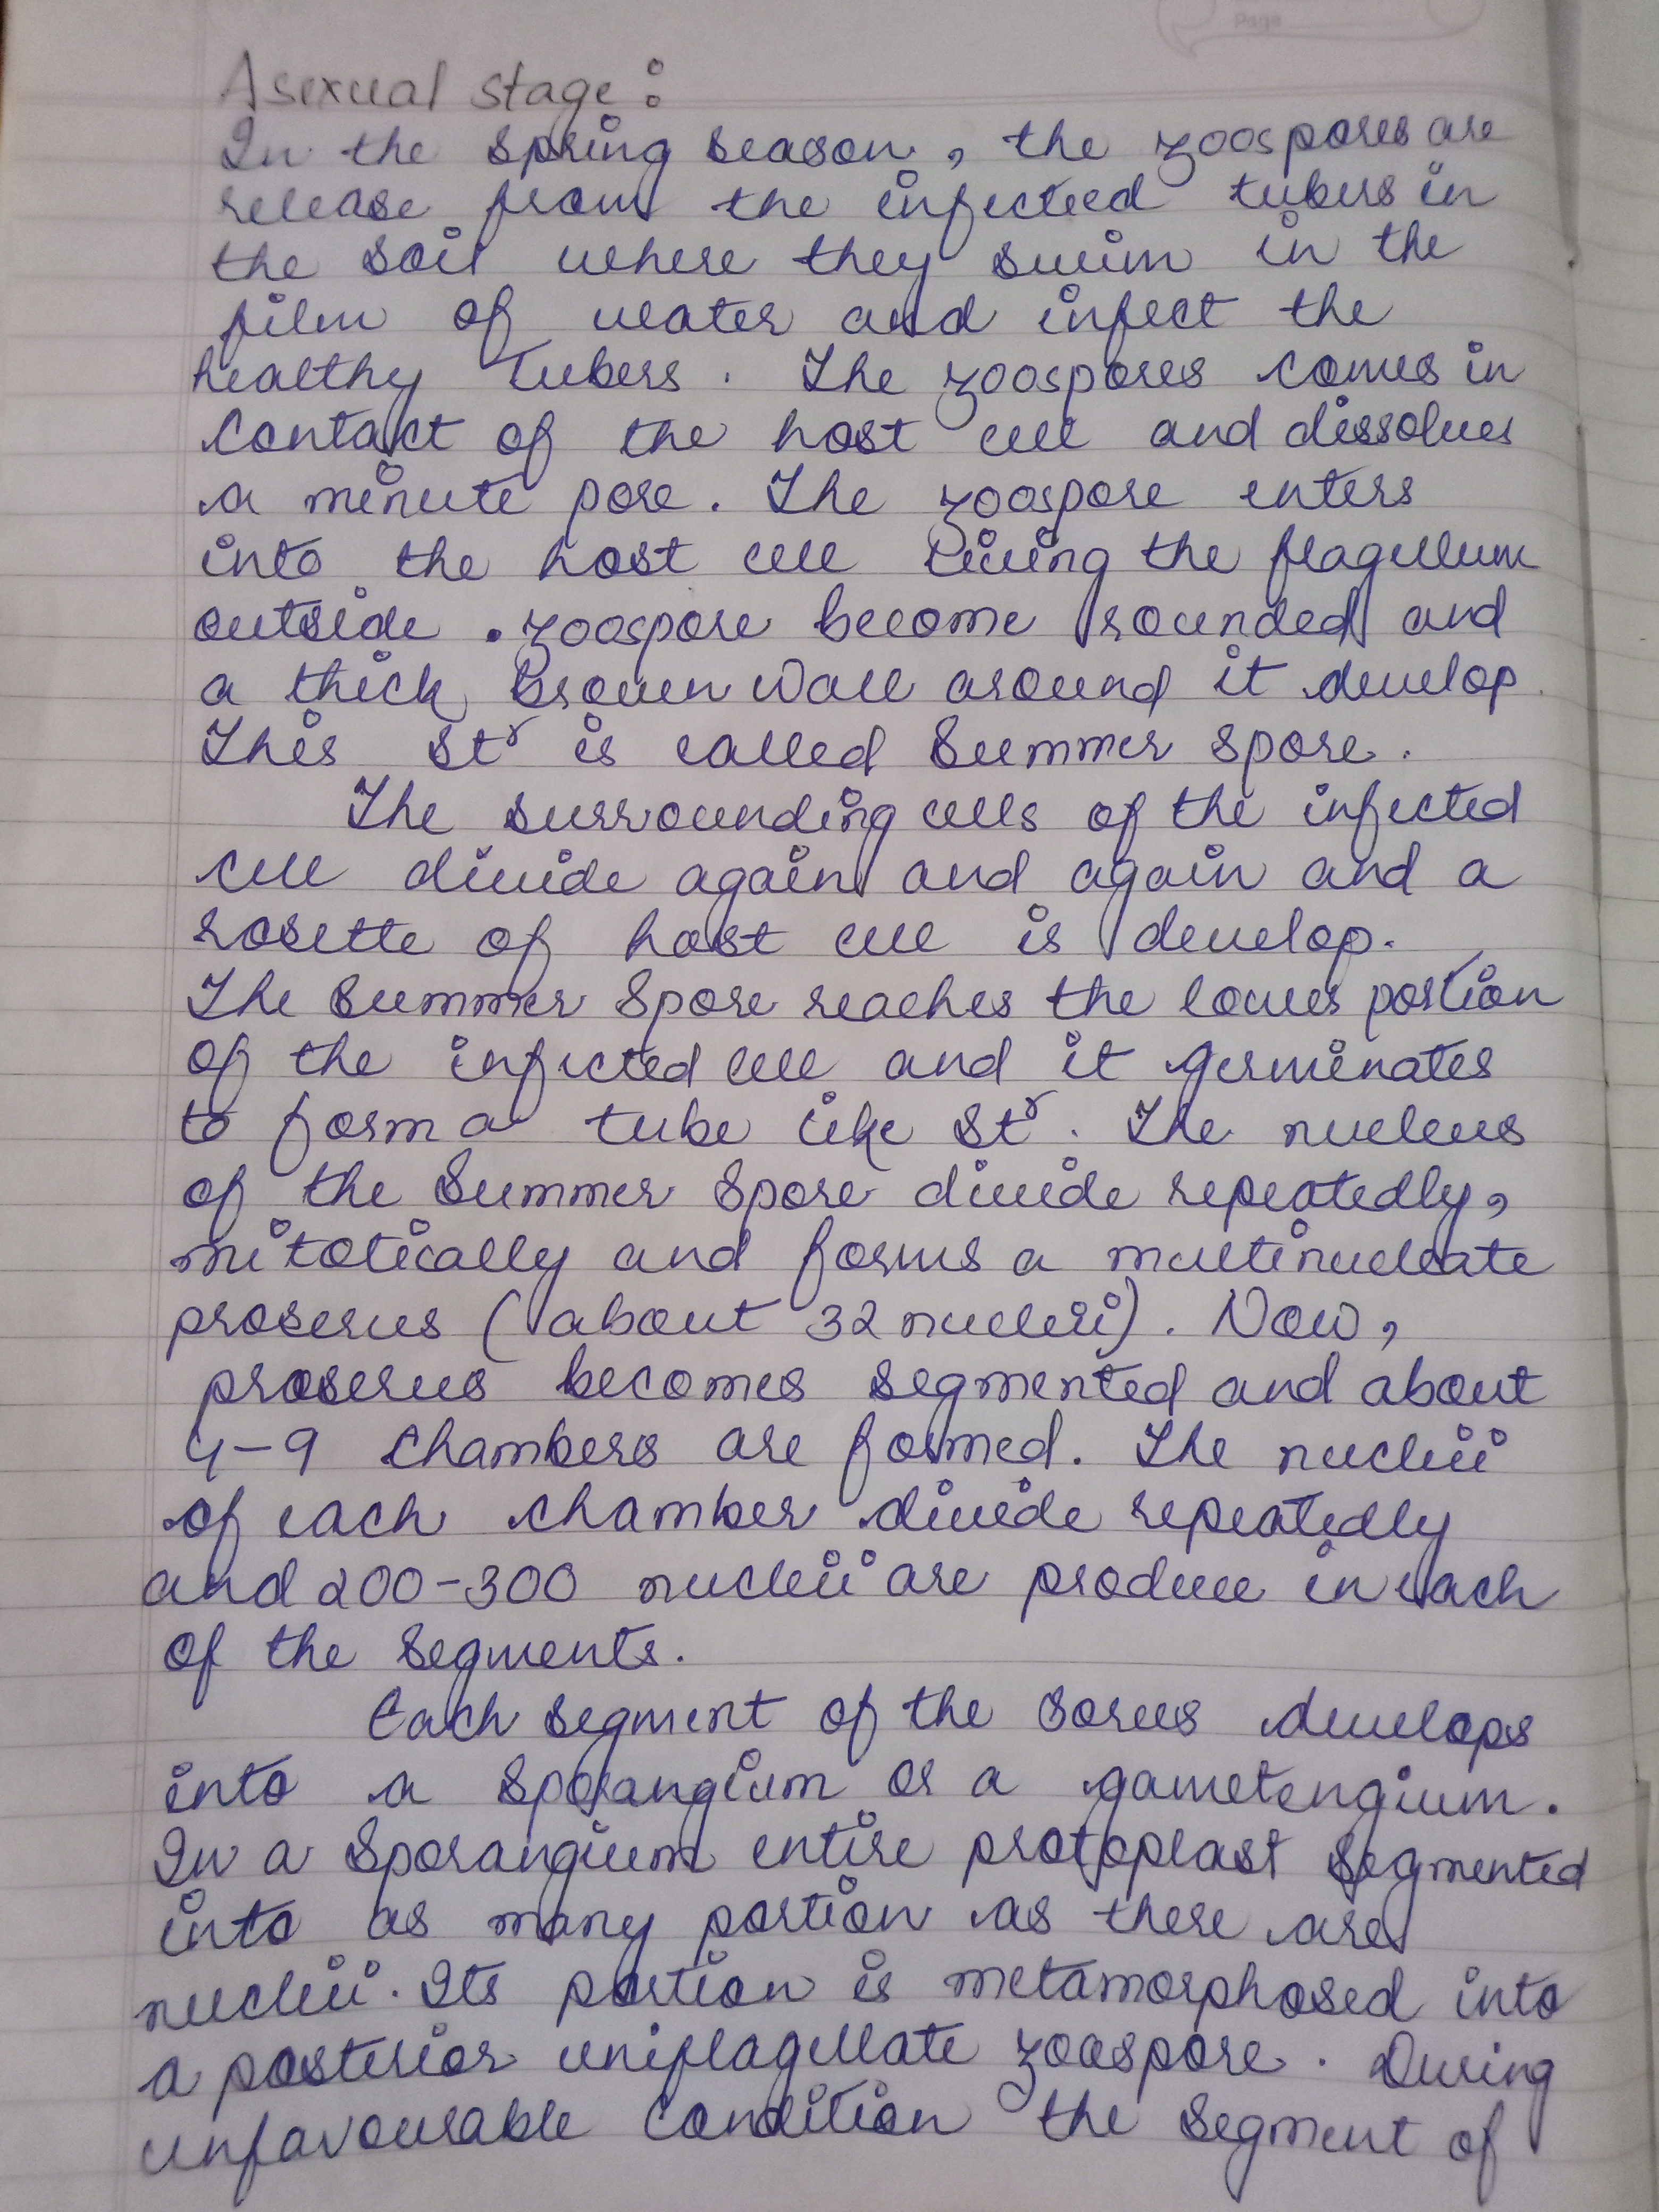 Page
Asexual stage :
In the spring season, the zoospores are
release from the infected tubers in
the soil where they swim in the
film of water and infect the
healthy Tubers. The zoospores comes in
Contact of the host cell and dissolves
a minute pore. The zoospore enters
into the host cell living the flagellum
outside. zoospore become rounded and
a thick Brown Wall around it develop.
This Stʳ is called Summer spore.
The surrounding cells of the infected
cell divide again and again and a
rosette of host cell is develop.
The Summer Spore reaches the lower portion
of the infected cell and it germinates
to form a tube like Stʳ. The nucleus
of the Summer Spore divide repeatedly,
mitotically and forms a multinucleate
proserus (about 32 nucleii). Now,
proserus becomes segmented and about
4-9 Chambers are formed. The nucleii
of each chamber divide repeatedly
and 200-300 nucleii are produce in each
of the Segments.
Each segment of the sorus develops
into a Sporangium or a gametengium.
In a Sporangium entire protoplast Segmented
into as many portion as there are
nucleii. Its portion is metamorphosed into
a posterior uniflagellate zoospore. During
unfavourable Condition the Segment of